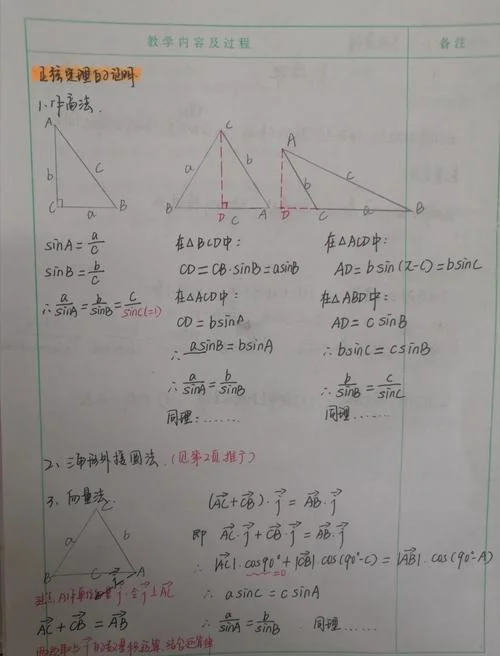 教学内容及过程
备注
正弦定理的证明
1、作高法.
A
b
c
C
a
B
C
a
b
B
D
c
A
A
b
c
D
C
a
B
sinA=a/c
sinB=b/c
∴a/sinA=b/sinB=c/sinC(=1)
在△BCD中:
CD=CB·sinB=asinB
在△ACD中:
CD=bsinA
∴asinB=bsinA
∴a/sinA=b/sinB
同理:……
在△ACD中:
AD=bsin(π-C)=bsinC
在△ABD中:
AD=csinB
∴bsinC=csinB
∴b/sinB=c/sinC
同理……
2、三角形外接圆法.(见第2页推广)
3、向量法.
C
a
b
B
c
A
j
过点A作单位向量j,令j⊥AC
AC+CB=AB
两边取与j的数量积运算,结合运算律
(AC+CB)·j=AB·j
即 AC·j+CB·j=AB·j
∴|AC|·cos90°+|CB|·cos(90°-C)=|AB|·cos(90°-A)
=0
∴asinC=csinA
∴a/sinA=b/sinB 同理……